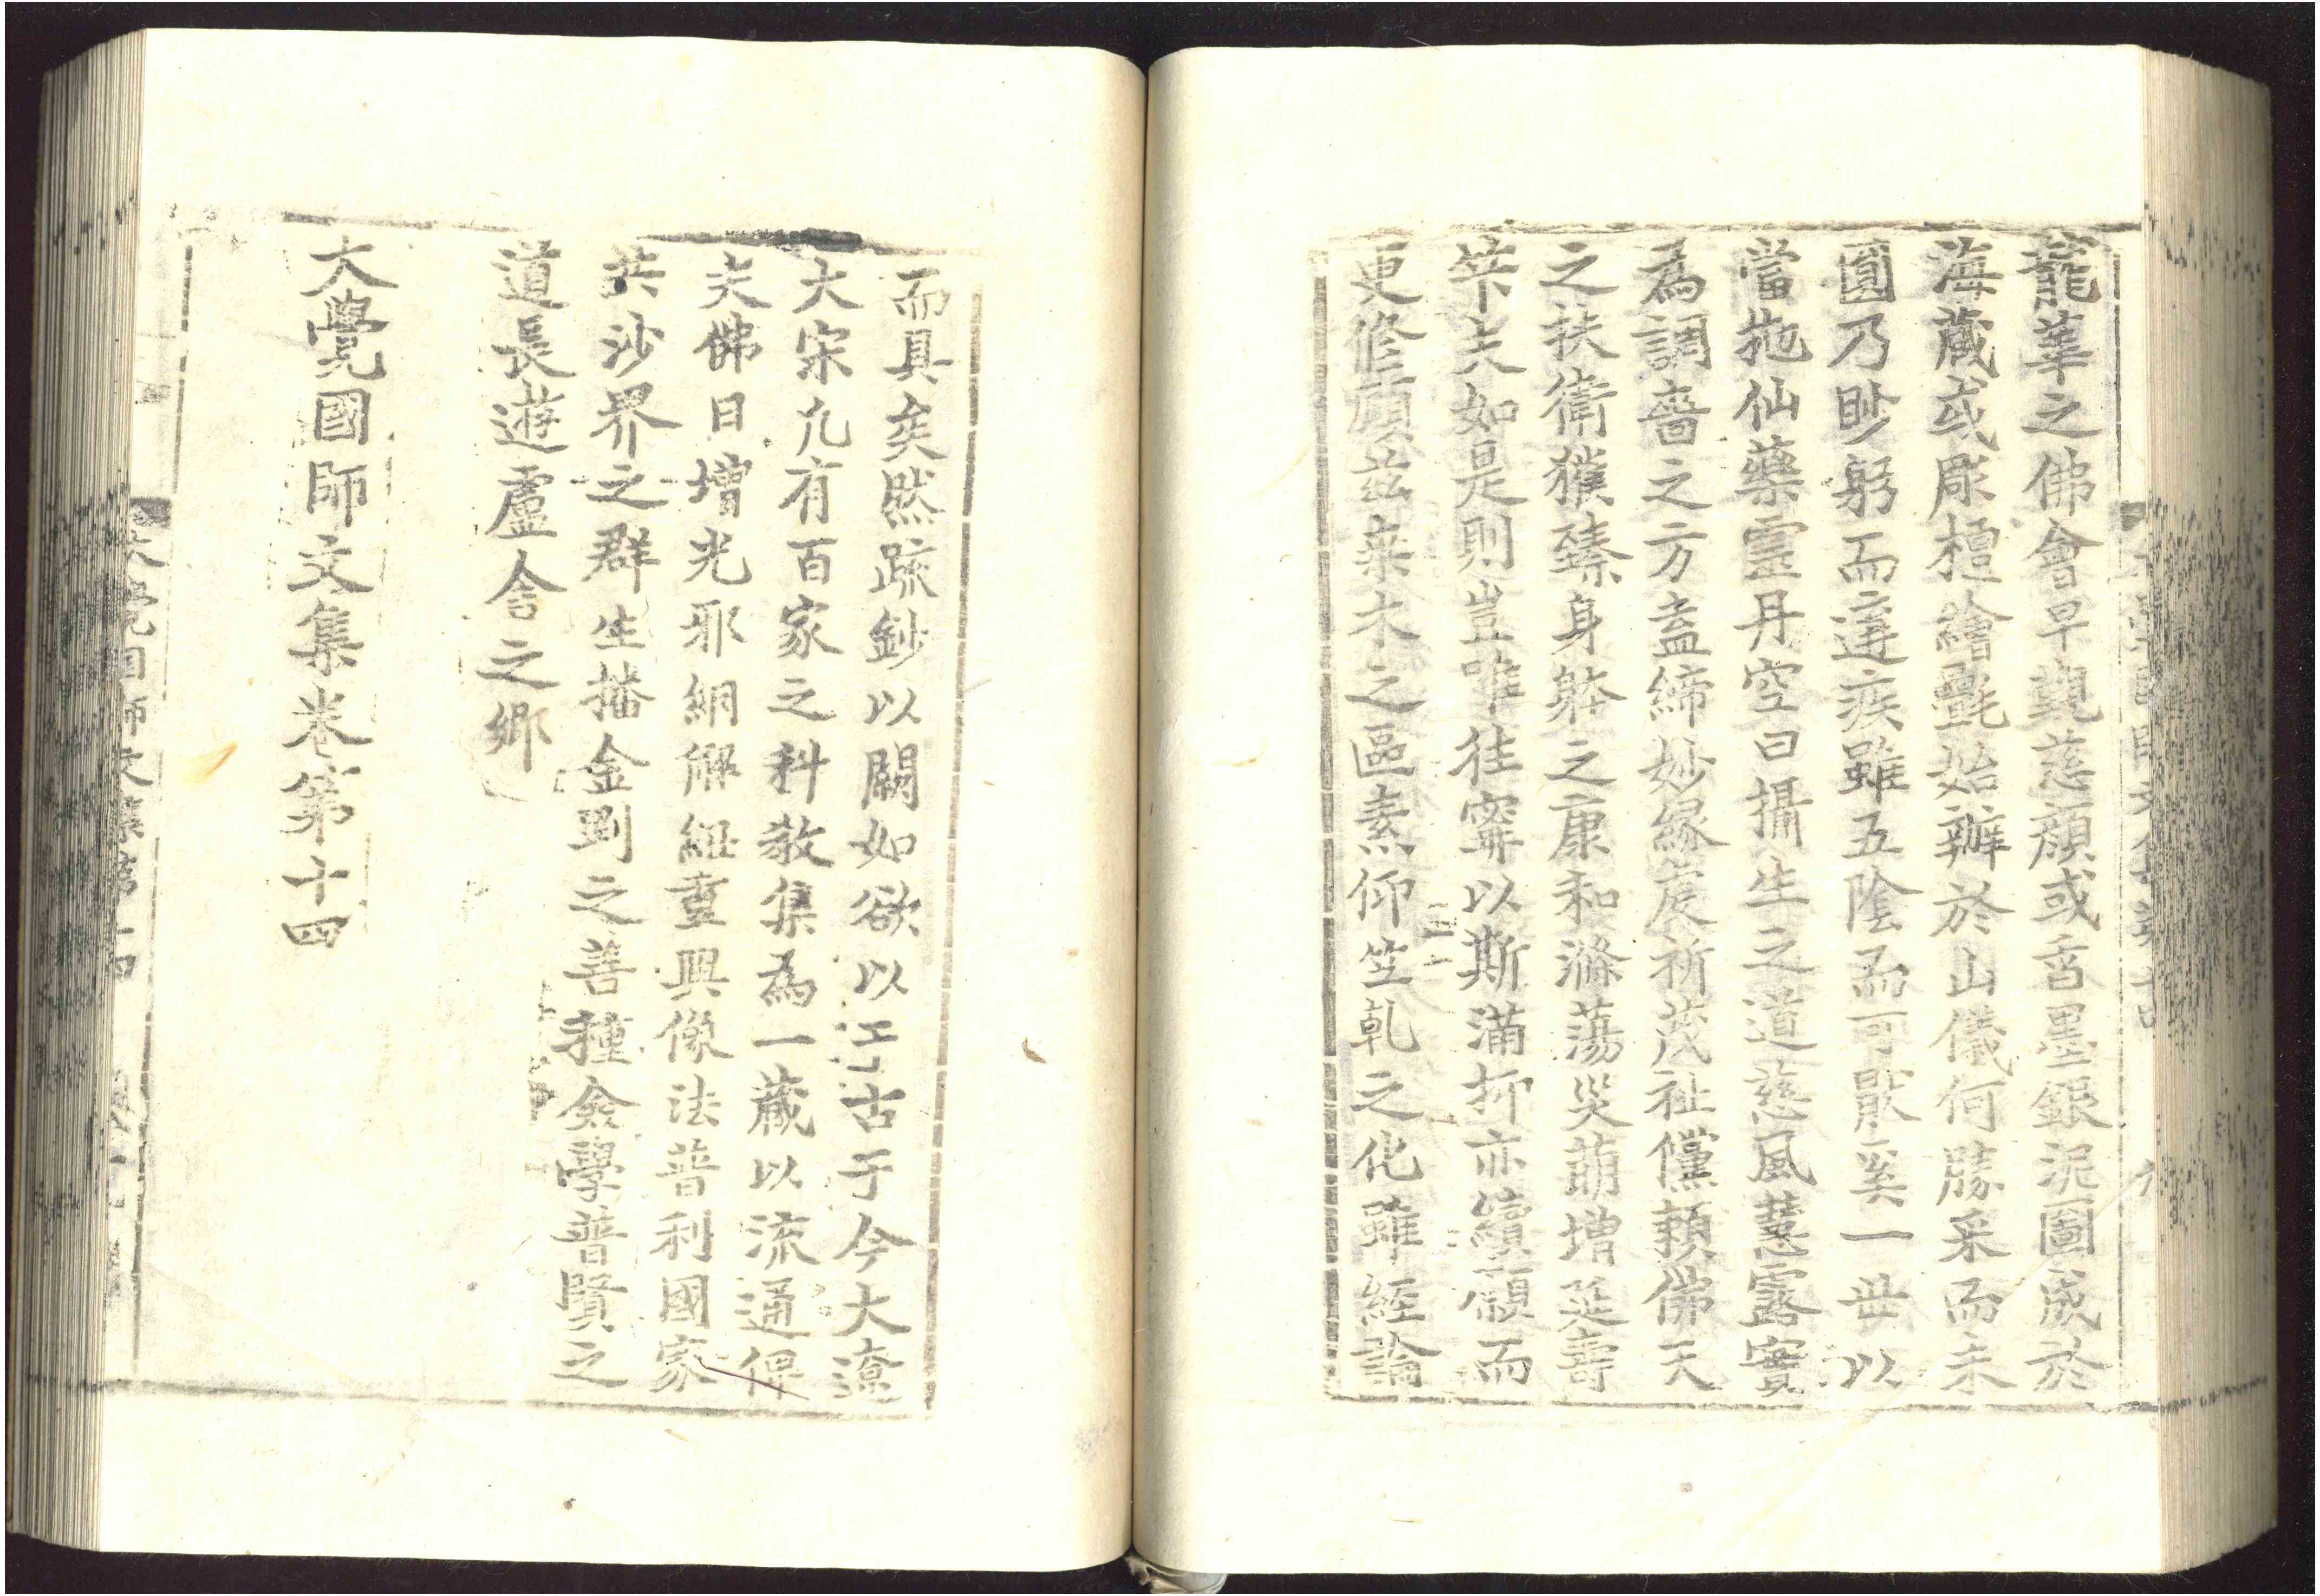 龍華之佛會早覩慈顔或香墨銀泥圖成於
海藏或彫檀繪㲲始辦於山儀何勝采而未
圓乃眇躬而遘疾雖五陰而可猒奚一世以
當拖仙藥靈丹空曰攝生之道慈風慧露寔
為調嗇之方盍締妙緣庱祈茂祉儻頼佛天
之扶衛獲臻身躰之康和滌蕩灾萌増延壽
筭夫如是則豈唯徃寗以斯滿抑亦續願而
更修顧玆桒木之區素仰笁乹之化雖經論
而具矣然䟽鈔以闕如欲以䢖古于今大遼
大宋九有百家之科教集為一藏以流通俾
夫佛日增光邪網解紐重興像法普利國家
共沙界之群生播金剛之善種僉學普賢之
道長遊盧舍之鄉
大覺國師文集卷第十四